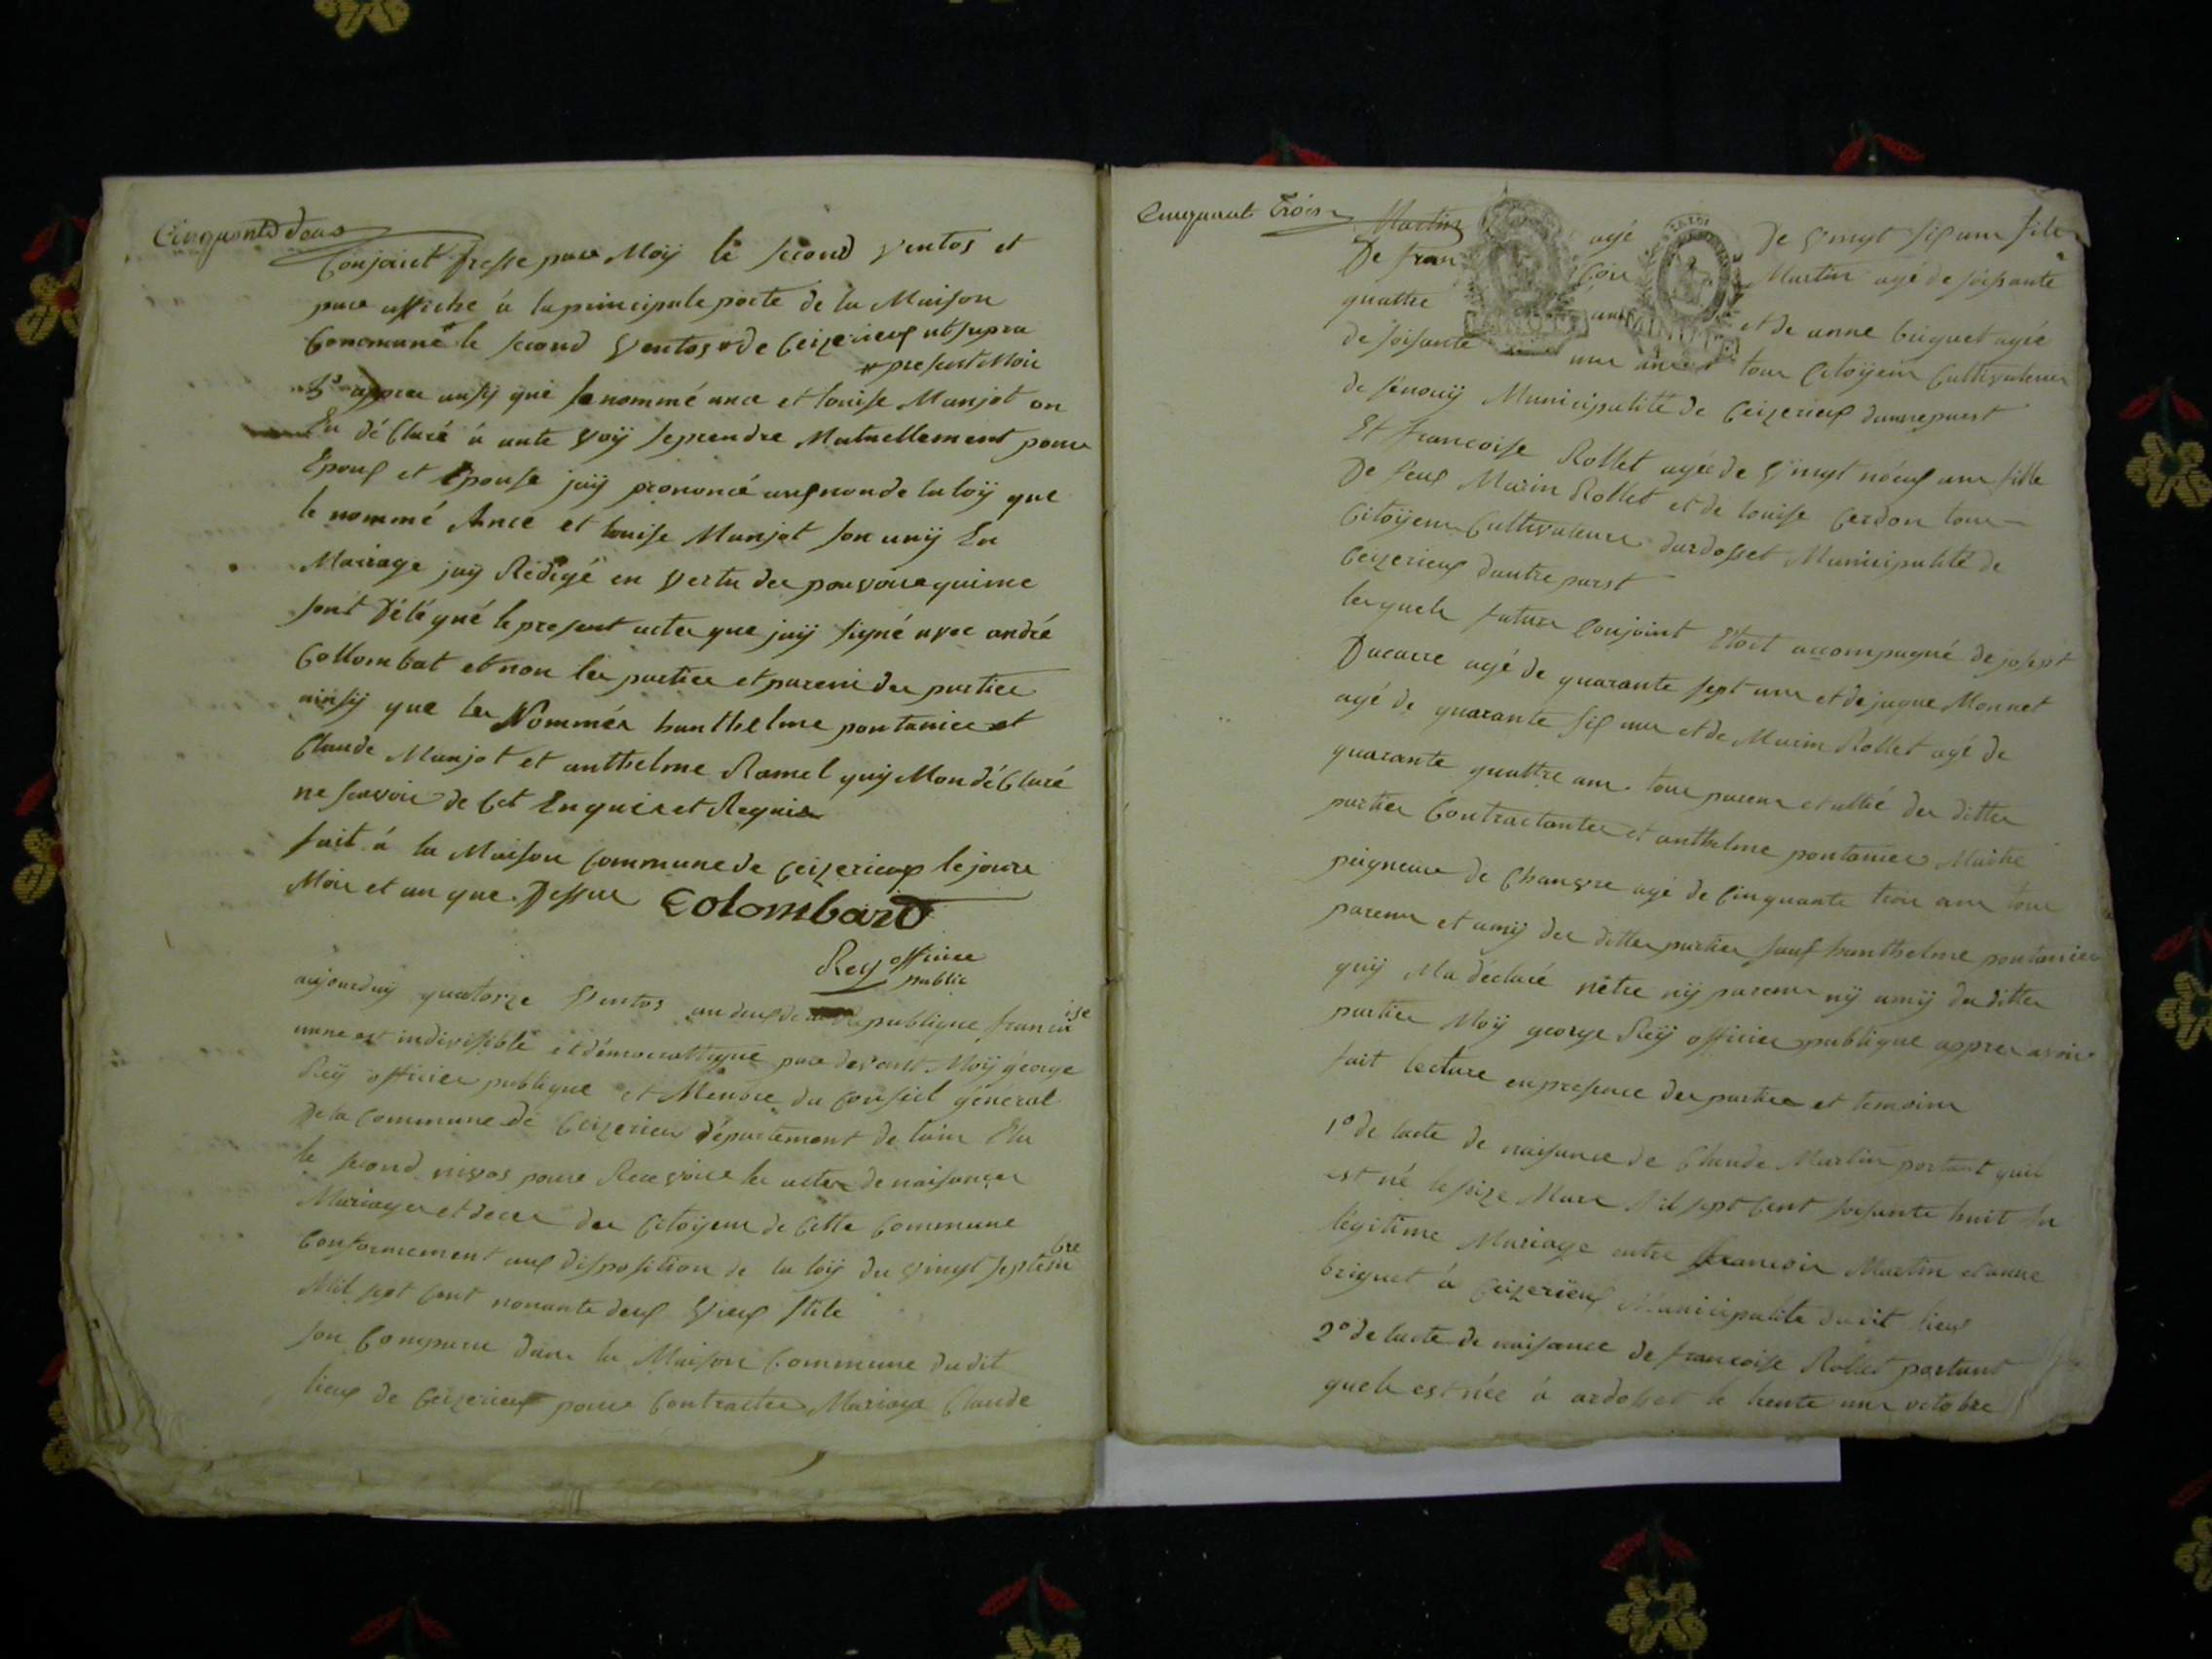 Cinquante deus
Conjoint dresse pare Moÿ le second ventos et
pare affiche á la principale porte de la Maison
Commune le second ventos * de Ceizerieux ut supra
* present Mois
3° appres ausÿ que le nommé ance et louise Manjot on
En déClaré á aute voÿ se prendre Mutuellement pour
Epoux et Epouse jaÿ prononcé aux nom de la loÿ que
le nommé Ance et louise Manjot son unÿ En
Mairage jaÿ Rédigé en vertu des pouvoire qui me
sont Délégué le present actes que jaÿ signé avec andré
Collombat et non les parties et parens des parties
ainsÿ que les Nommés hanthelme pontanier et
Claude Manjot et anthelme Ramel quÿ Mon déClaré
ne savoir de Cet Enquis et Requis
fait á la Maison Commune de Ceizerieux le joure
Mois et an que Dessus Colombard
Rey officier
public
aujourduÿ quatorze ventos an deux de Republique francaise
unne et indivisible et démocrattique pare devant Moÿ géorge
Reÿ officier publique et Menbre du Conseil général
De la Commune de Ceizerieu département de lain Elu
le second nivos poure Recevoire les actes de naisances
Mariages et deces des Citoÿens de Cette Commune
Conformement aux disposition de la loÿ du vingt septembre
Mil sept Cent nonante deux vieux stile
son Comparu dans la Maison Commune dudit
lieux de Ceizerieux poure Contracter Mariage Claude
Cinquant trois
Martin agé De vingt six ans fils
De francois Martin agé de soissante
quattre ans et de anne briguet agée
de soisante une années tous Citoÿens Cultivateurs
de senouÿ Municipalité de Ceizerieux dunne parst
Et francoise Rollet agée de vingt nœuf ans fille
De feux Marin Rollet et de louise Cerdon tous
Citoÿens Cultivateurs dardosset Municipalité de
Ceizerieux dautre parst
lesquels futurs Conjoint Etoit accompagné de josept
Ducarre agé de quarante sept ans et de jaque Monnet
agé de quarante six ans et de Marin Rollet agé de
quarante quattre ans tous parens et allié des dittes
parties Contractantes et anthelme pontanier Maitre
peigneure de Chanvre agé de Cinquante trois ans tous
parens et amÿ des dittes parties sauf hanthelme pontanier
quÿ Ma déclaré nêtre nÿ parens nÿ amÿ des dittes
parties Moÿ george Reÿ officier publique appres avoir
fait lecture en presence des parties et temoins
1° de lacte de naisance de Claude Martin portant quil
est né le seize Mars Mil sept Cent soisante huit du
légitime Mariage entre francois Martin et anne
briguet á Ceizerieux Municipalité dudit lieux
2° de lacte de naisance de francoise Rollet portant
quels est née á ardosset le trente un octobre